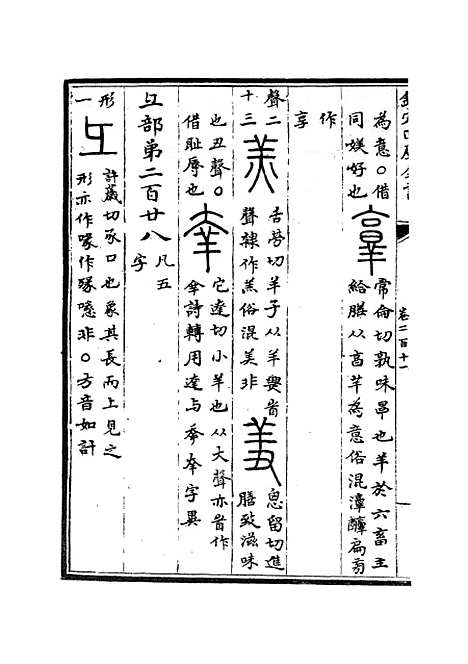 卷二百十一
為意〇借
同媄好也
常倫切孰味也羊於六畜主
給膳从亯芉為意俗混
作
享
聲二
十三
羔
切羊子从羊省
聲隸作羔俗混美非
羞
息留切進
膳致滋味
也丑聲〇
借耻辱也
羍
它達切小羊也从大聲亦省作
傘詩轉用達与夲字異
彑部第二百廿八
凡五
字
形
一
彑
許歲切豕口也象其長而上見之
形亦作喙作非〇方音如計